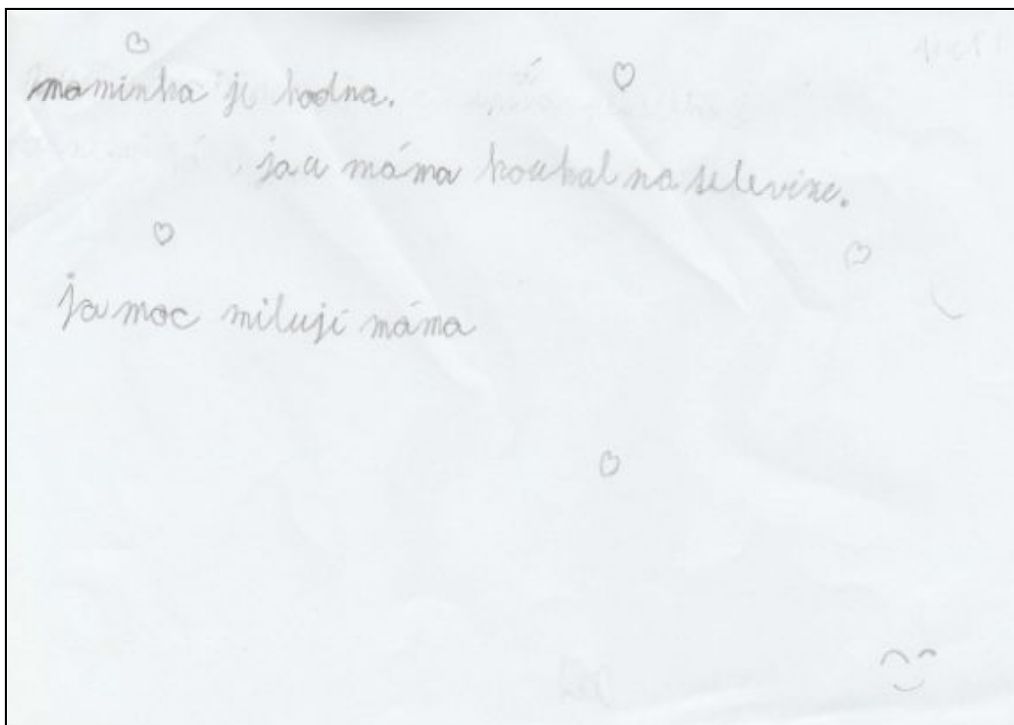 maminka je hodna.
ja a máma koukal na televize.
ja moc milují máma